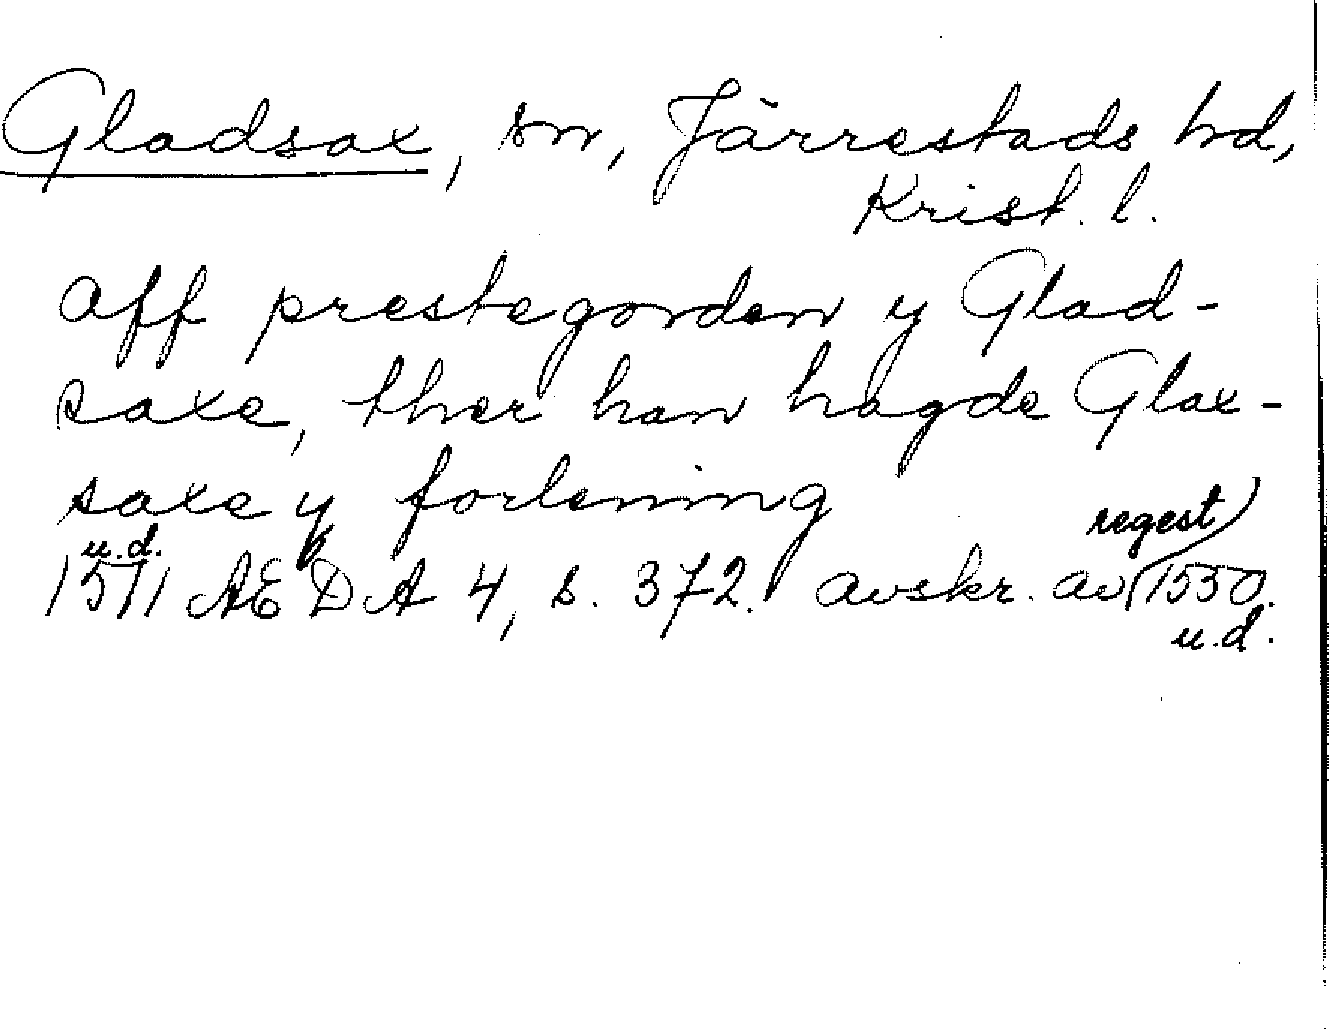 Gladsax, sn, Järrestads hd,
Krist. l.
aff prestegorden y Glad-
saxe, ther han hagde Glax-
saxe y forlening
u.d. regest
1571 AEDA 4, s. 372. avskr. av 1550.
u.d.